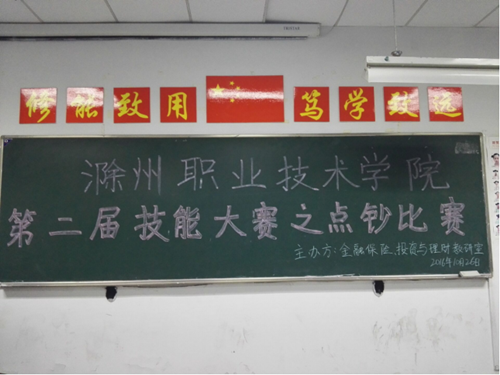 修能致用 笃学致远
滁州职业技术学院
第二届技能大赛之点钞比赛
主办方:金融保险、投资与理财教研室